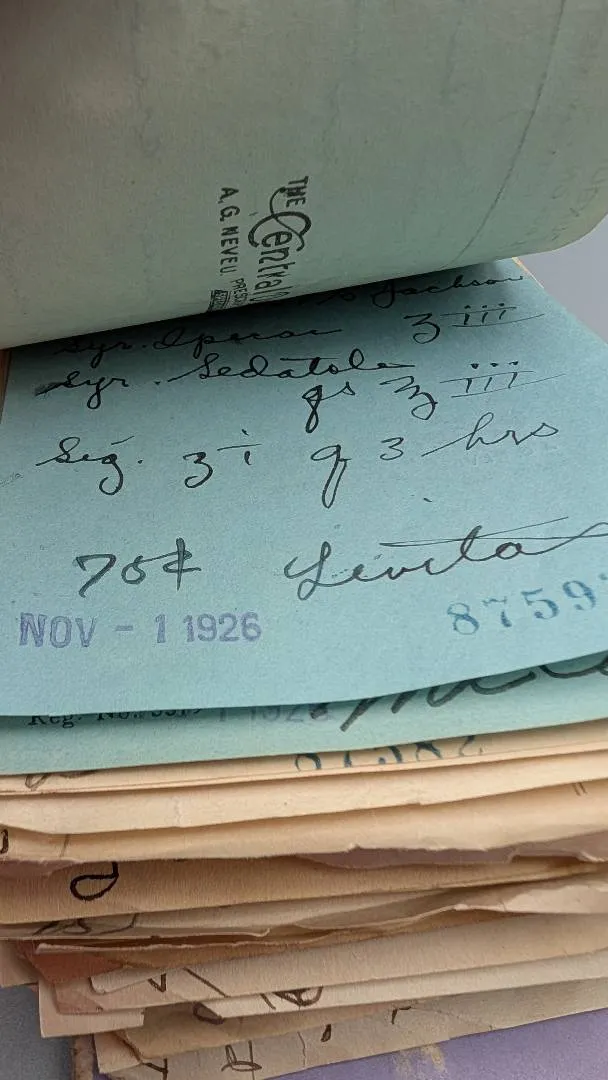 THE Central
A. G. NEVEU, PRES
Jackson
Syr. Ipecac ʒ iii
Syr. Sedatole
qs ℥ iii
Sig. ʒ i q 3 hrs
70¢ Levita
NOV - 1 1926 8759
Reg. No.